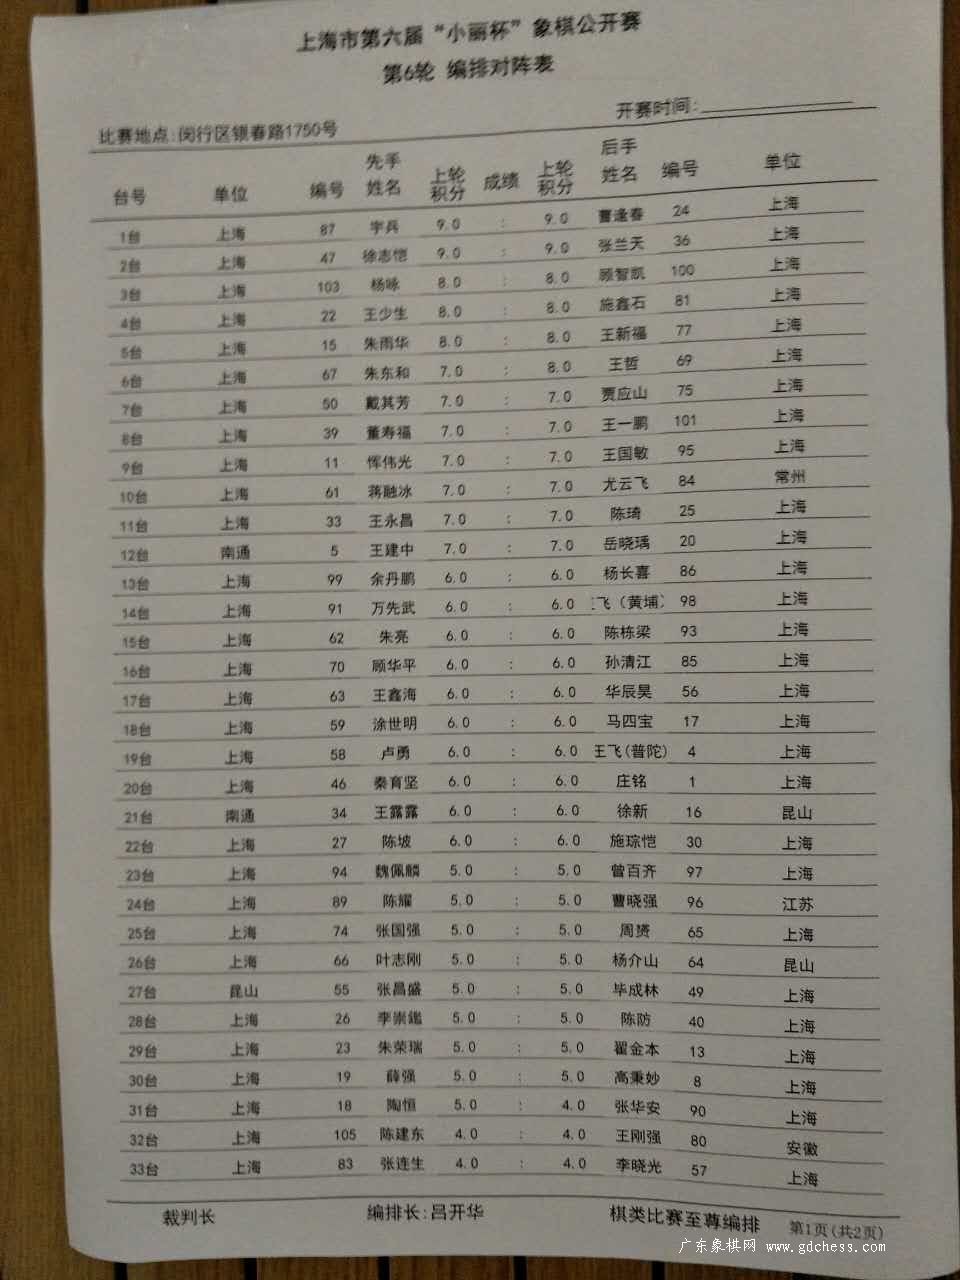 上海市第六届“小丽杯”象棋公开赛
第6轮 编排对阵表
比赛地点:闵行区银春路1750号 开赛时间:
台号 单位 编号 先手姓名 上轮积分 成绩 上轮积分 后手姓名 编号 单位
1台 上海 87 宇兵 9.0 : 9.0 曹逢春 24 上海
2台 上海 47 徐志恺 9.0 : 9.0 张兰天 36 上海
3台 上海 103 杨咏 8.0 : 8.0 顾智凯 100 上海
4台 上海 22 王少生 8.0 : 8.0 施鑫石 81 上海
5台 上海 15 朱雨华 8.0 : 8.0 王新福 77 上海
6台 上海 67 朱东和 7.0 : 8.0 王哲 69 上海
7台 上海 50 戴其芳 7.0 : 7.0 贾应山 75 上海
8台 上海 39 董寿福 7.0 : 7.0 王一鹏 101 上海
9台 上海 11 恽伟光 7.0 : 7.0 王国敏 95 上海
10台 上海 61 蒋融冰 7.0 : 7.0 尤云飞 84 常州
11台 上海 33 王永昌 7.0 : 7.0 陈琦 25 上海
12台 南通 5 王建中 7.0 : 7.0 岳晓瑀 20 上海
13台 上海 99 余丹鹏 6.0 : 6.0 杨长喜 86 上海
14台 上海 91 万先武 6.0 : 6.0 飞（黄埔） 98 上海
15台 上海 62 朱亮 6.0 : 6.0 陈栋梁 93 上海
16台 上海 70 顾华平 6.0 : 6.0 孙清江 85 上海
17台 上海 63 王鑫海 6.0 : 6.0 华辰昊 56 上海
18台 上海 59 涂世明 6.0 : 6.0 马四宝 17 上海
19台 上海 58 卢勇 6.0 : 6.0 王飞(普陀) 4 上海
20台 上海 46 秦育坚 6.0 : 6.0 庄铭 1 上海
21台 南通 34 王露露 6.0 : 6.0 徐新 16 昆山
22台 上海 27 陈坡 6.0 : 6.0 施琮恺 30 上海
23台 上海 94 魏佩麟 5.0 : 5.0 曾百齐 97 上海
24台 上海 89 陈耀 5.0 : 5.0 曹晓强 96 江苏
25台 上海 74 张国强 5.0 : 5.0 周赟 65 上海
26台 上海 66 叶志刚 5.0 : 5.0 杨介山 64 昆山
27台 昆山 55 张昌盛 5.0 : 5.0 毕成林 49 上海
28台 上海 26 李崇鑑 5.0 : 5.0 陈防 40 上海
29台 上海 23 朱荣瑞 5.0 : 5.0 翟金本 13 上海
30台 上海 19 薛强 5.0 : 5.0 高秉妙 8 上海
31台 上海 18 陶恒 5.0 : 4.0 张华安 90 上海
32台 上海 105 陈建东 4.0 : 4.0 王刚强 80 安徽
33台 上海 83 张连生 4.0 : 4.0 李晓光 57 上海
裁判长 编排长:吕开华 棋类比赛至尊编排 第1页(共2页)
广东象棋网 www.gdchess.com